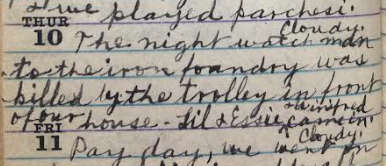 & we played parchesi.
THUR
10 The night watch man
Cloudy.
to the iron foundry was
killed by the trolley in front
of our house - Lil & Essie & Winifred
came in.
FRI
11 Cloudy.
Pay day, we went in